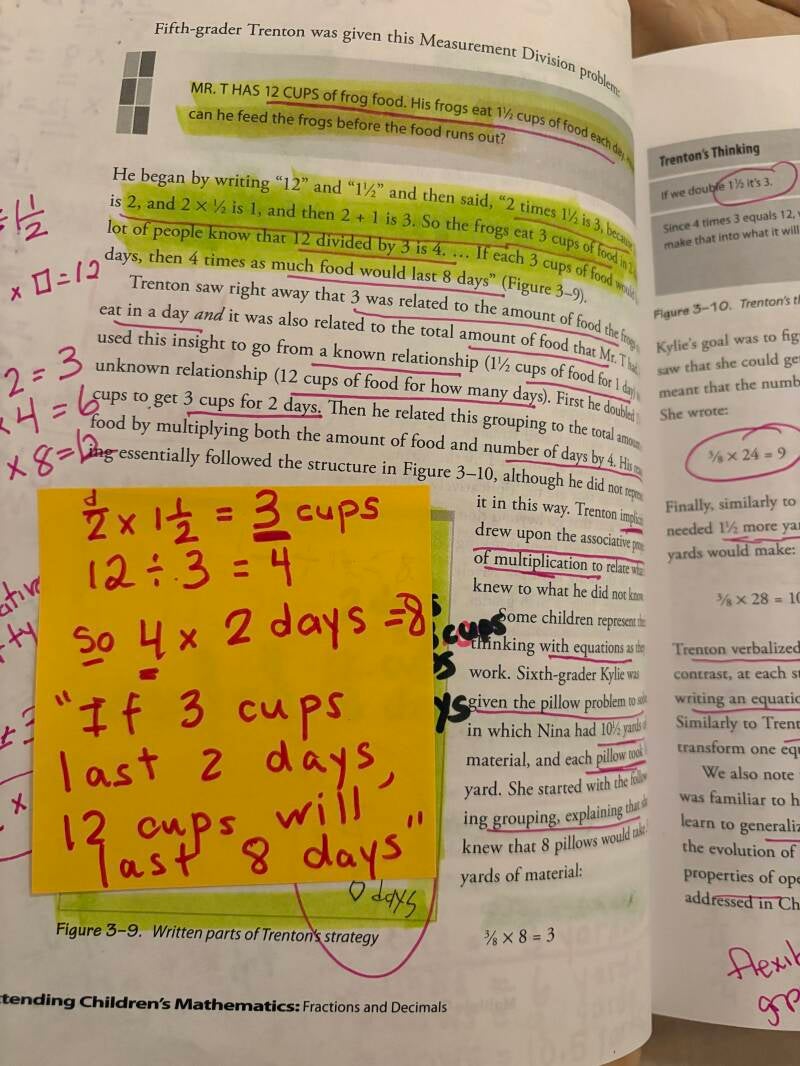 Fifth-grader Trenton was given this Measurement Division problem:
MR. T HAS 12 CUPS of frog food. His frogs eat 1½ cups of food each day.
can he feed the frogs before the food runs out?
He began by writing “12” and “1½” and then said, “2 times 1½ is 3, because
is 2, and 2 × ½ is 1, and then 2 + 1 is 3. So the frogs eat 3 cups of food in 2
lot of people know that 12 divided by 3 is 4. … If each 3 cups of food would
days, then 4 times as much food would last 8 days” (Figure 3–9).
Trenton saw right away that 3 was related to the amount of food the frogs
eat in a day and it was also related to the total amount of food that Mr. T had.
used this insight to go from a known relationship (1½ cups of food for 1 day)
unknown relationship (12 cups of food for how many days). First he doubled
cups to get 3 cups for 2 days. Then he related this grouping to the total amount
food by multiplying both the amount of food and number of days by 4. His
ing essentially followed the structure in Figure 3–10, although he did not
it in this way. Trenton
drew upon the associative
of multiplication to relate what
knew to what he did not know.
Some children represent
thinking with equations as
work. Sixth-grader Kylie was
given the pillow problem to
in which Nina had 10½ yards
material, and each pillow took
yard. She started with the
ing grouping, explaining that
knew that 8 pillows would take
yards of material:
⅜ × 8 = 3
= 1½
× □ = 12
2 = 3
× 4 = 6
× 8 = 12
2 × 1½ = 3 cups
12 ÷ 3 = 4
so 4 × 2 days = 8
"If 3 cups
last 2 days,
12 cups will
last 8 days"
cups
days
Figure 3–9. Written parts of Trenton's strategy
tending Children's Mathematics: Fractions and Decimals
Trenton's Thinking
If we double 1½ it's 3.
Since 4 times 3 equals 12,
make that into what it will
Figure 3–10. Trenton's
Kylie's goal was to
saw that she could
meant that the
She wrote:
⅜ × 24 = 9
Finally, similarly to
needed 1½ more
yards would make:
⅜ × 28 =
Trenton verbalized
contrast, at each
writing an
Similarly to
transform one
We also note
was familiar to
learn to
the evolution of
properties of
addressed in